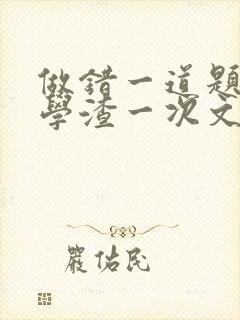 做錯一道題
學渣一次文
嚴佑民